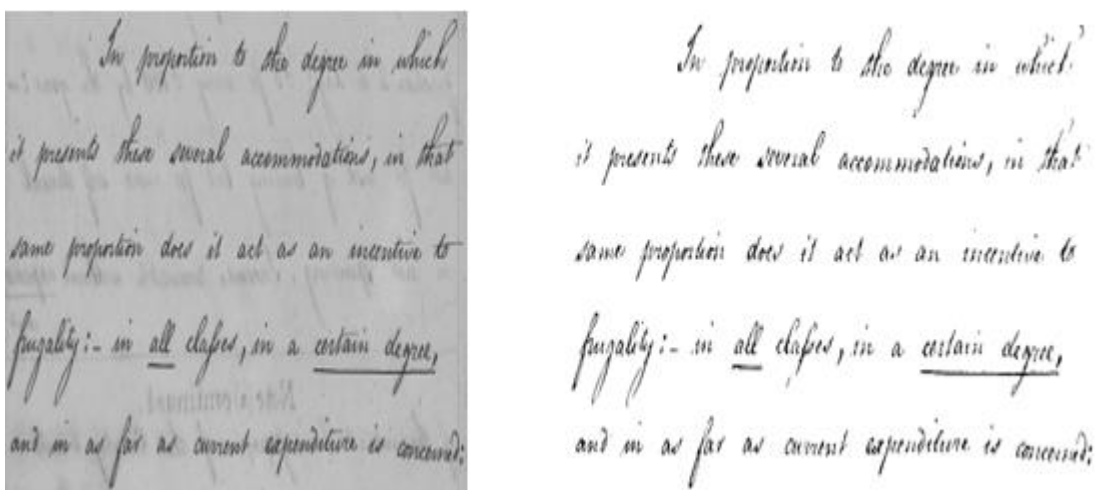 In proportion to the degree in which
it presents these several accommodations, in that
same proportion does it act as an incentive to
frugality:- in all claſses, in a certain degree,
and in as far as current expenditure is concerned:
In proportion to the degree in which
it presents these several accommodations, in that
same proportion does it act as an incentive to
frugality:- in all claſses, in a certain degree,
and in as far as current expenditure is concerned: